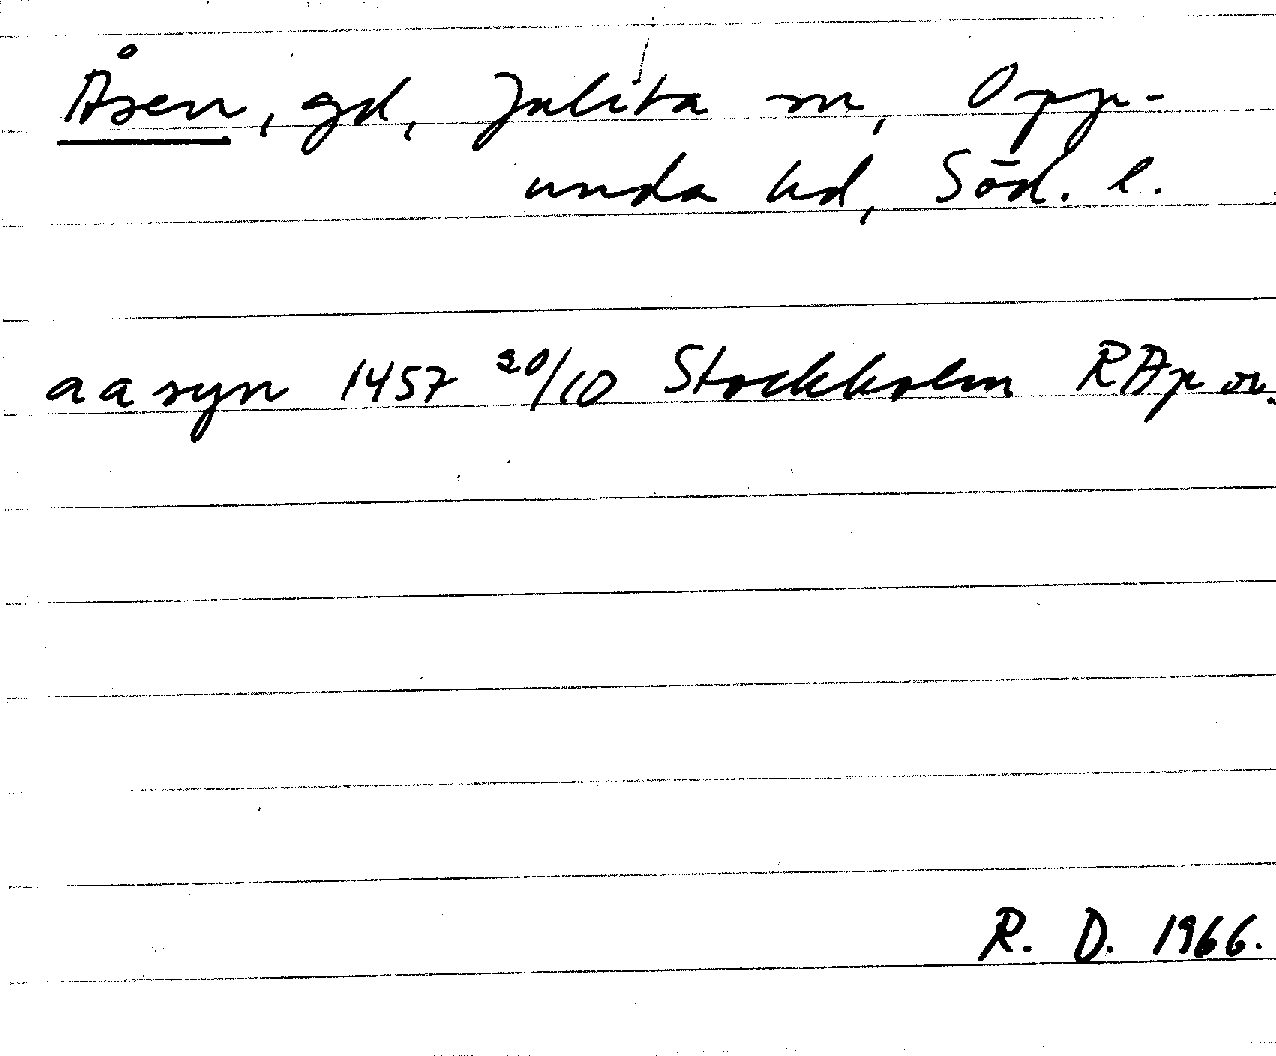 Åsen, gd, Julita sn, Opp-
unda hd, Söd. l.
aasyn 1457 20/10 Stockholm RAp or.
R. D. 1966.